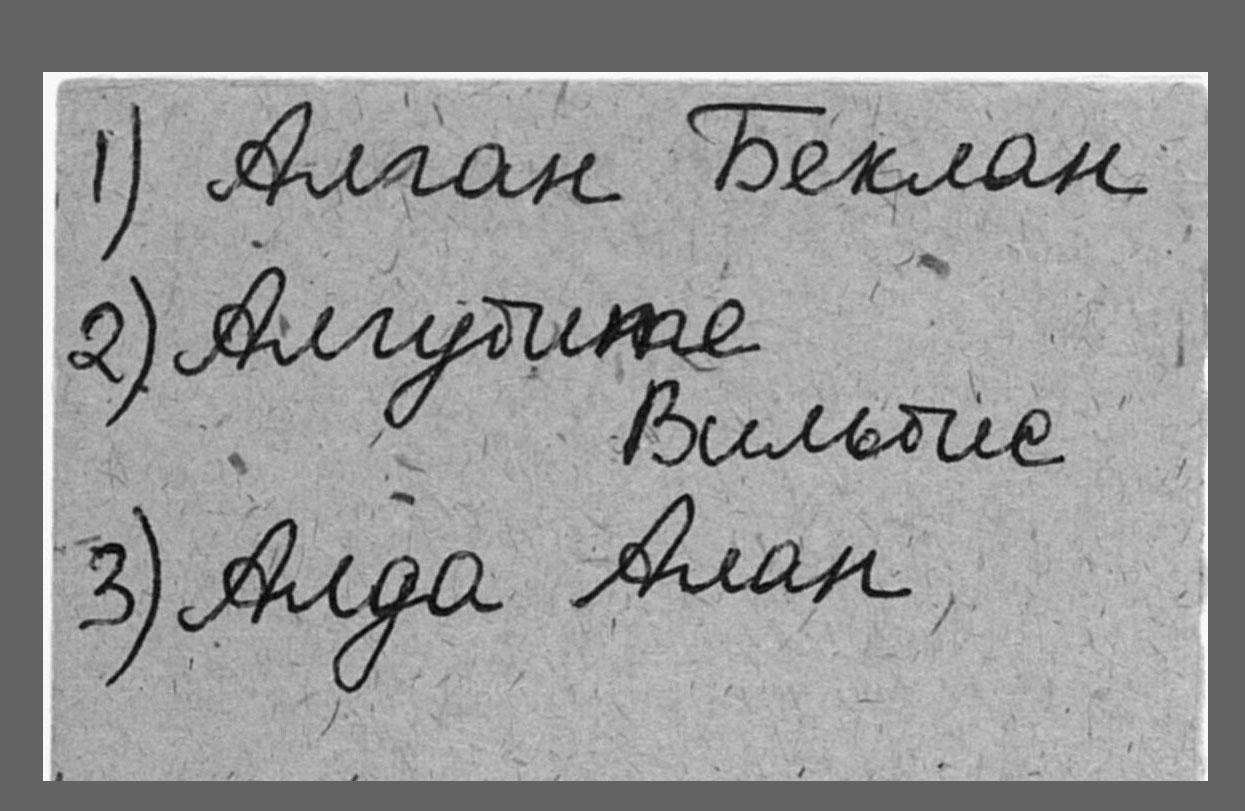 1) Алган Беклан
2) Алгубиже
Вильбие
3) Алда Алан